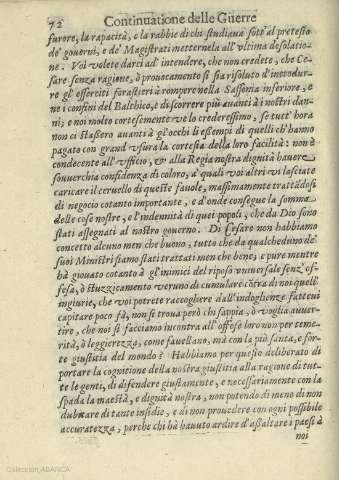 72 Continuatione delle Guerre
furore, la rapacità, e la rabbie di chi studiaua sott' al pretesto
de' gouerni, e de' Magistrati metternela all' vltima desolatio-
ne. Voi volete darci ad intendere, che non credete, che Ce-
sare senza ragione, ò prouocamento si sia risoluto d'introdur-
re gl' esserciti forastieri à romper nella Sassonia inferiore, e
ne i confini del Balthico, e discorrere più auanti à i nostri dan-
ni; e noi molto cortesemente ve lo crederessimo, se tutt' hora
non ci stassero auanti à gl' occhi li essempi di quelli ch' hanno
pagato con grand' vsura la cortesia della loro facilità: non è
condecente all' vfficio, & alla Regia nostra dignità hauere
souuerchia confidenza di coloro, a' quali voi altri vi lasciate
caricare il ceruello di queste fauole, massimamente trattãdosi
di negocio cotanto importante, e d'onde consegue la somma
delle cose nostre, e l'indennità di quei popoli, che da Dio sono
stati assegnati al nostro gouerno. Di Cesare non habbiamo
concetto alcuno men che buono, tutto che da qualcheduno de'
suoi Ministri siamo stati trattati men che bene; e pure mentre
hà giouato cotanto à gl' inimici del riposo vniuersale senz' of-
fesa, ò stuzzicamento veruno di cumulare cõtra di noi quelle
ingiurie, che voi potrete raccogliere dall' indoglienze fatteui
capitare poco fà, non si troua però chi sappia, ò voglia auuer-
tire, che noi si facciamo incontra all' offese loro non per teme-
rità, ò leggierezza, come fauellano, mà con la più santa, e for-
te giustitia del mondo? Habbiamo per questo deliberato di
portare la cognitione della nostra giustitia alla ragione di tut-
te le genti, di difendere giustamente, e necessariamente con la
spada la maestà, e dignità nostra, non potendo di meno di non
dubitare di tante insidie, e di non prouedere con ogni possibile
accuratezza, perche chi hà hauuto ardire d'assaltare i paesi à
noi
Colección ABANCA